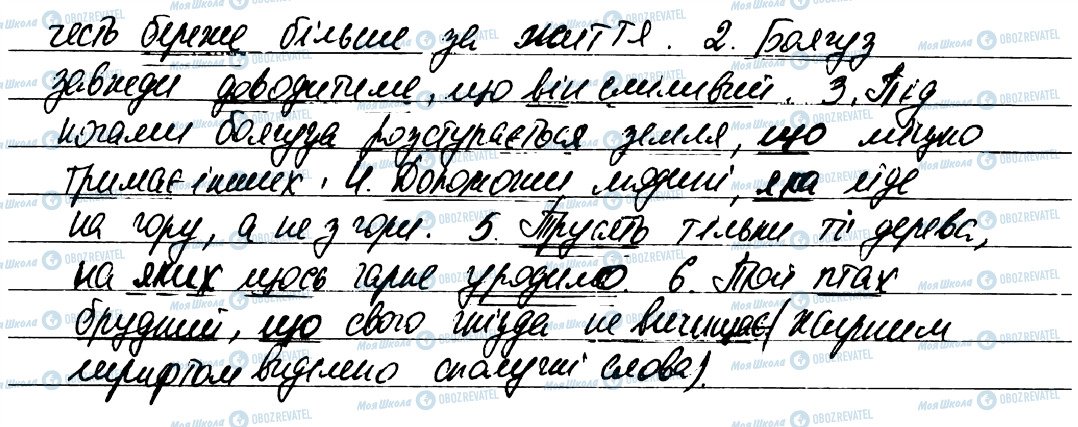 честь береже більше за життя. 2. Боягуз
завжди доводитиме, що він сміливий. 3. Під
ногами боягуза розступається земля, що міцно
тримає інших. 4. Допоможи людині, яка йде
на гору, а не з гори. 5. Трусять тільки ті дерева,
на яких щось гарне уродило. 6. Той птах
брудний, що свого гнізда не вичищає (Жирним
шрифтом виділено сполучні слова).